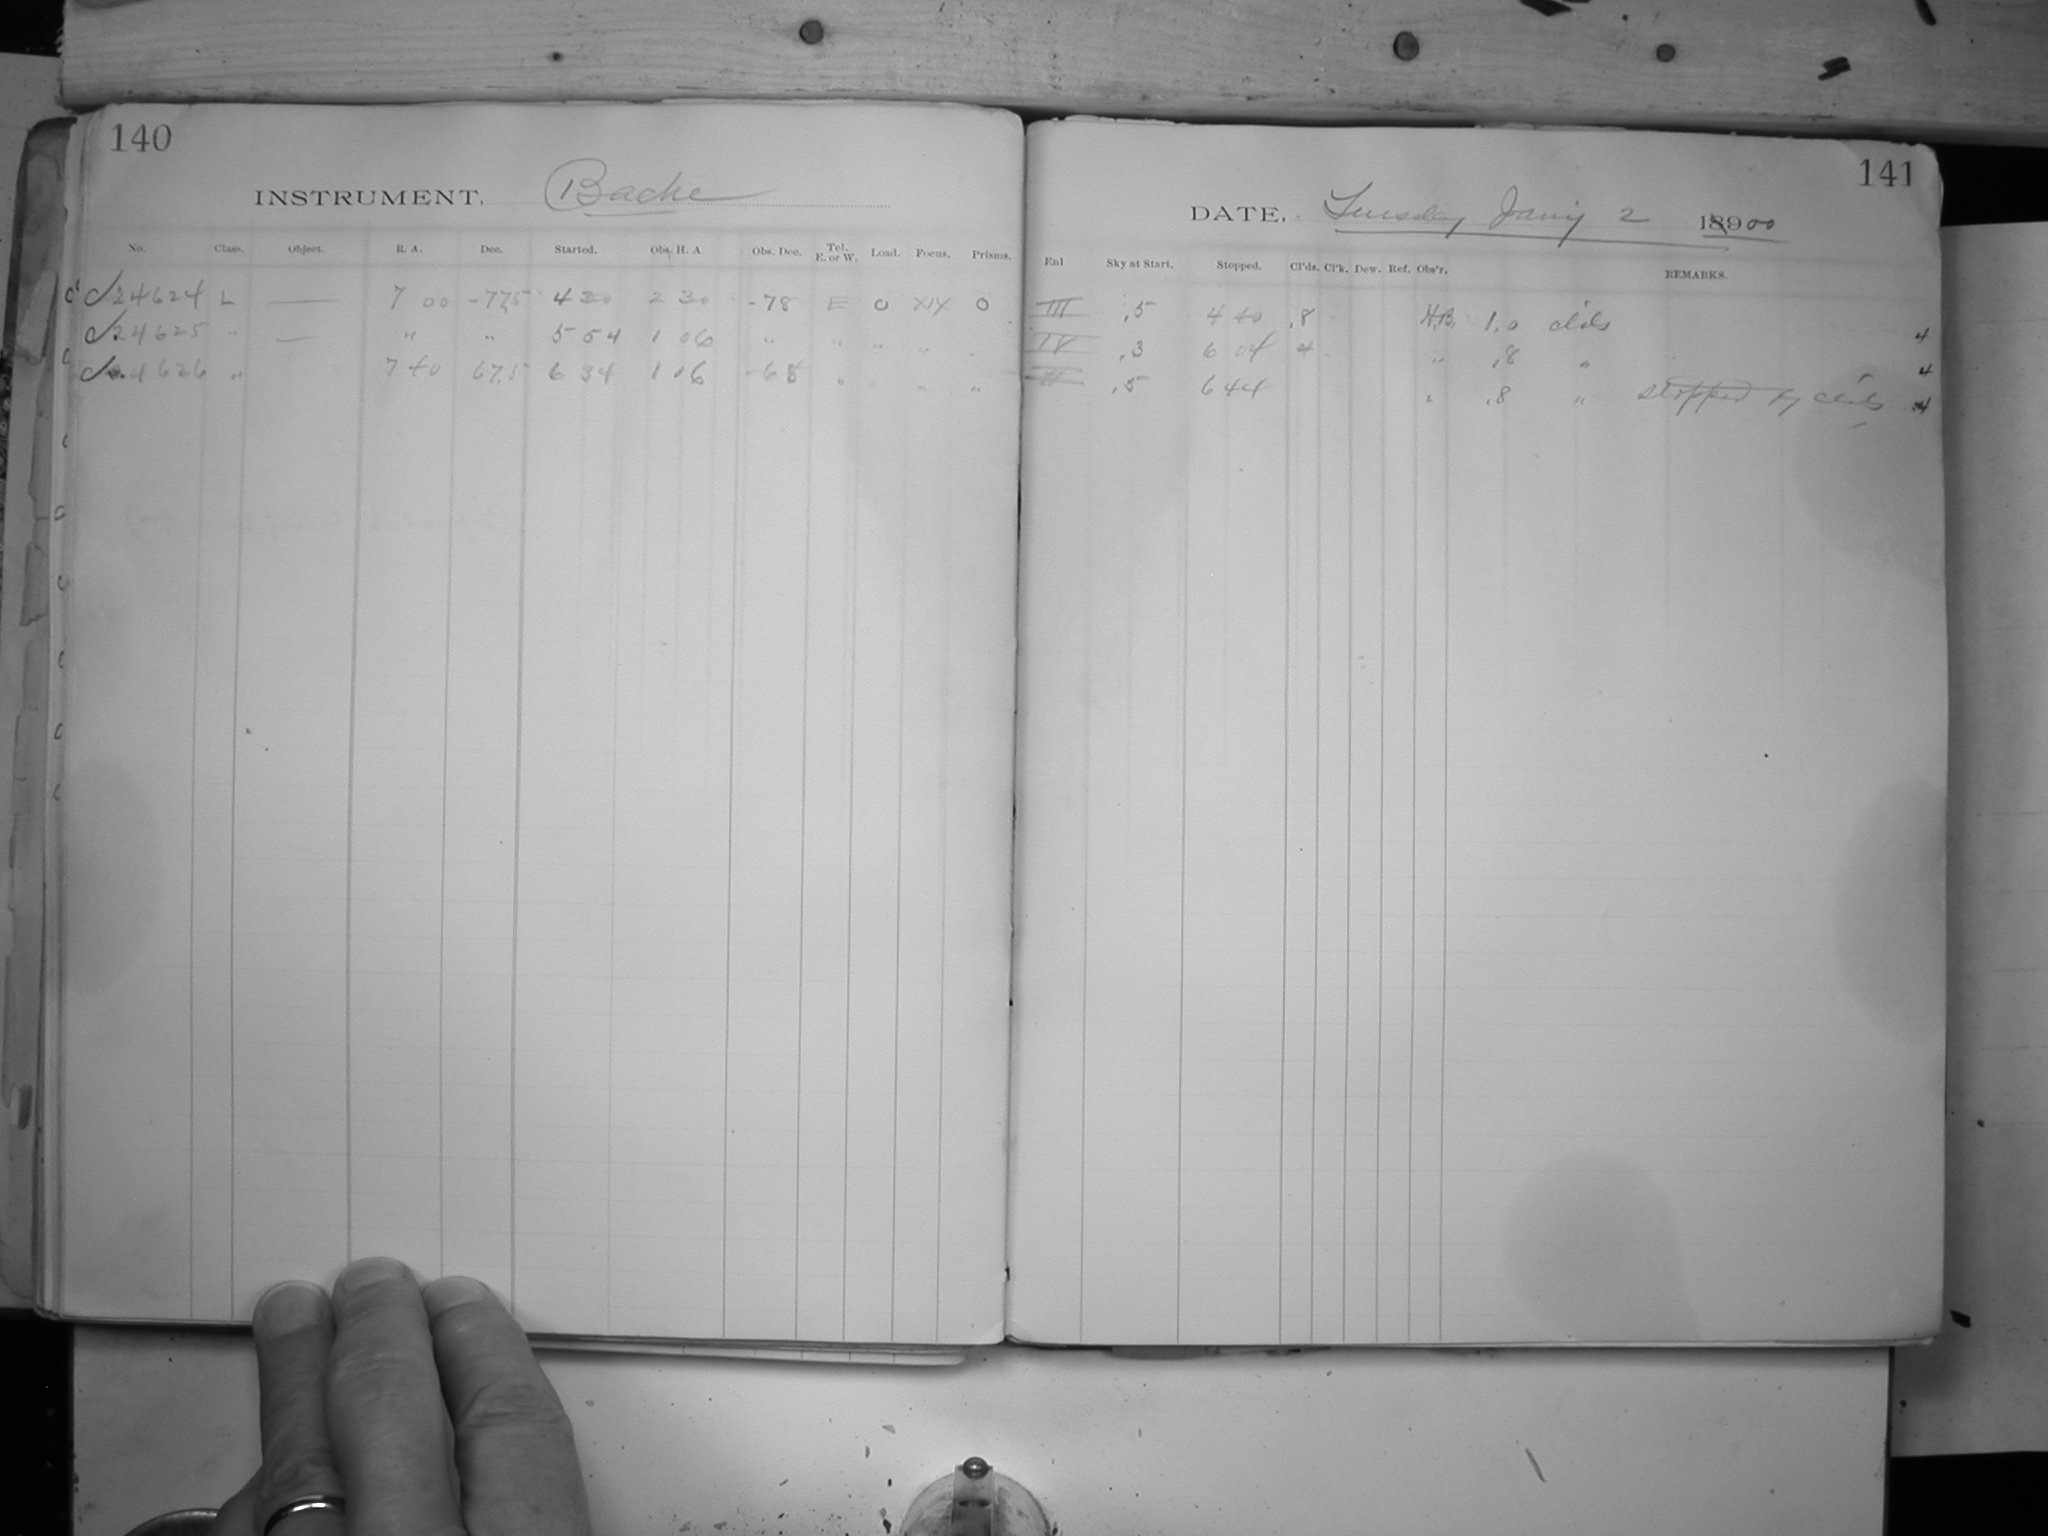 140
INSTRUMENT. Bache
No. Class. Object. R. A. Dec. Started. Obs. H. A. Obs. Dec. Tel. E. or W. Load. Focus. Prisms.
24624 L — 7 00 -77,5 4 30 2 30 -78 E 0 XIX 0
24625 " — " " 5 54 1 06 " " " " "
24626 " 7 40 67,5 6 34 1 06 -68 " " " "
141
DATE, Tuesday Jan'y 2 18900
Enl Sky at Start. Stopped. Cl'ds. Cl'k. Dew. Ref. Obs'r. REMARKS.
III .5 4 40 .8 H.B. 1.0 clds 4
IV .3 6 04 " .8 " 4
.5 6 44 " .8 " stopped by clds 4